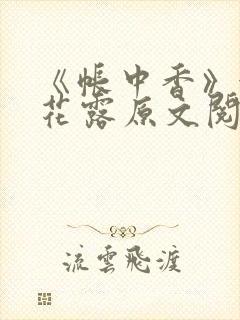 《帐中香》
花露原文阅
流雲飛渡